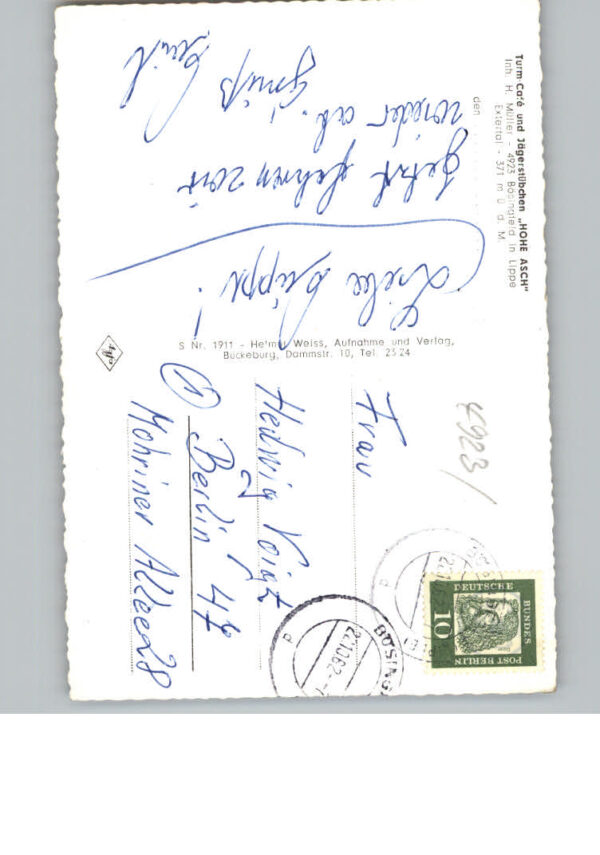 Turm-Café und Jägerstübchen „HOHE ASCH"
Inh. H. Müller - 4923 Bösingfeld in Lippe
Extertal - 371 m ü. d. M.
den
Liebe Puppe!
Jetzt fahren wir
wieder ab. Gruß
S Nr. 1911 - Helmut Weiss, Aufnahme und Verlag,
Bückeburg, Dammstr. 10, Tel. 23 24
Agfa
4923/
Frau
Hedwig Voigt
① Berlin 47
Mohriner Allee 28
DEUTSCHE BUNDES
POST BERLIN
10
BÖSING
22.10.62